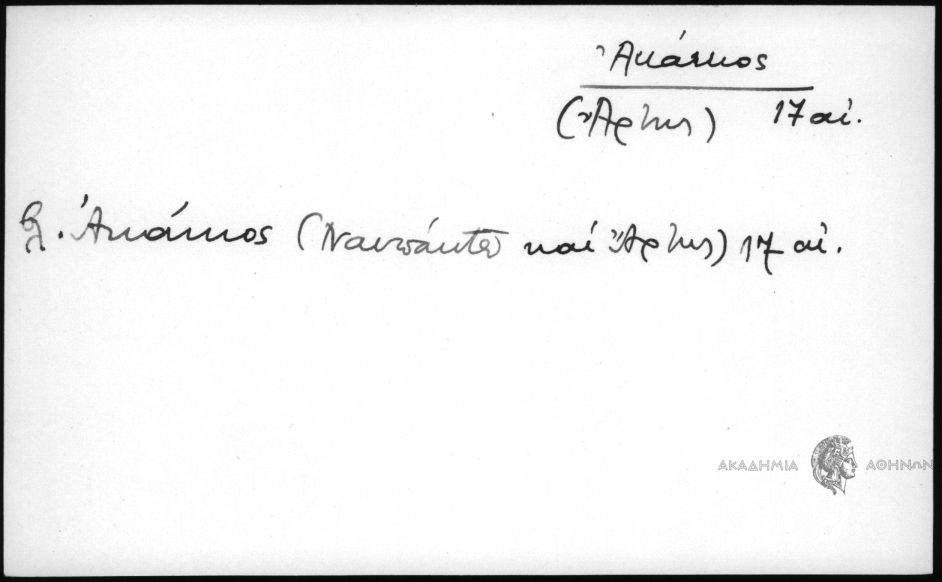 Ἀκάκιος
(Ἄρτης) 17 αἰ.
βλ. Ἀκάκιος (Ναυπάκτου καί Ἄρτης) 17 αἰ.
ΑΚΑΔΗΜΙΑ ΑΘΗΝΩΝ